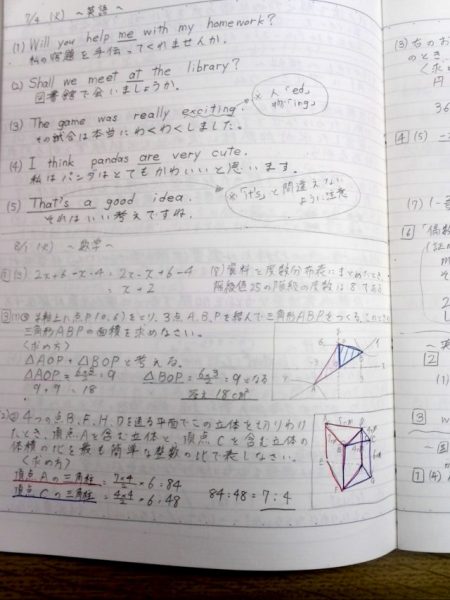 7/4 (火) ~英語~
(1) Will you help me with my homework?
私の宿題を手伝ってくれませんか。
(2) Shall we meet at the library?
図書館で会いましょうか。
(3) The game was really exciting.
その試合は本当にわくわくしました。
※ 人「ed」
物「ing」
(4) I think pandas are very cute.
私はパンダはとてもかわいいと思います。
(5) That's a good idea.
それはいい考えですね。
※「It's」と間違えない
ように注意
8/1 (火) ~数学~
(3) 2x+6-x-4 = 2x-x+6-4
= x+2
資料を度数分布表にまとめたとき
階級値25の階級の度数は8である。
3 y軸上に点P(0,6)をとり、3点A,B,Pを結んで三角形ABPをつくる。このとき
三角形ABPの面積を求めなさい。
(求め方)
△AOP+△BOPと考える。
△AOP = 6×3/2 = 9 △BOP = 6×3/2 = 9 となる
9+9=18
答え 18cm²
4つの点B,F,H,Dを通る平面でこの立体を切りわけ
たとき、頂点Aを含む立体と、頂点Cを含む立体の
体積の比を最も簡単な整数の比で表しなさい。
(求め方)
頂点Aの三角柱 = 7×4/2 × 6 = 84
頂点Cの三角柱 = 4×4/2 × 6 = 48
84:48 = 7:4
(3) 右のお
のとき、
(求
円
36
4 (5)
(7)
6 「偶数
(証
~英
2
(1)
3
1 (4)